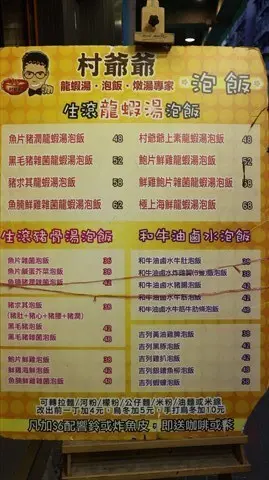 村爺爺
龍蝦湯・泡飯・燉湯專家
泡飯
生滾龍蝦湯泡飯
魚片豬潤龍蝦湯泡飯 48
黑毛豬雜菌龍蝦湯泡飯 52
豬求其龍蝦湯泡飯 58
魚腩鮮雞雜菌龍蝦湯泡飯 62
村爺爺上素龍蝦湯泡飯 48
鮑片鮮雞龍蝦湯泡飯 52
鮮雞鮑片雜菌龍蝦湯泡飯 58
極上海鮮龍蝦湯泡飯 68
生滾豬骨湯泡飯
魚片雜菌泡飯 36
魚片鹹蛋芥菜泡飯 38
魚腩豬潤雜菌泡飯 42
豬求其泡飯 36
(豬肚+豬心+豬腰+豬潤)
黑毛豬泡飯 42
黑毛豬雜菌泡飯 48
鮑片鮮雞泡飯 38
鮮雞海鮮泡飯 42
魚腩鮮雞雜菌泡飯 48
和牛油鹵水泡飯
和牛油鹵水牛肚泡飯
和牛油鹵水豬腩泡飯
和牛油鹵水牛筋泡飯
和牛油鹵水牛筋牛肋條泡飯
吉列黃油雞脾泡飯 36
吉列黑豚泡飯
吉列雞扒泡飯
吉列銀鱈魚柳泡飯
吉列蝦泡飯
可轉拉麵/河粉/檬粉/公仔麵/米粉/油麵或米線
改出前一丁加4元,烏冬加5元,手打烏冬加10元
凡加$6配響鈴或炸魚皮,即送咖啡或茶